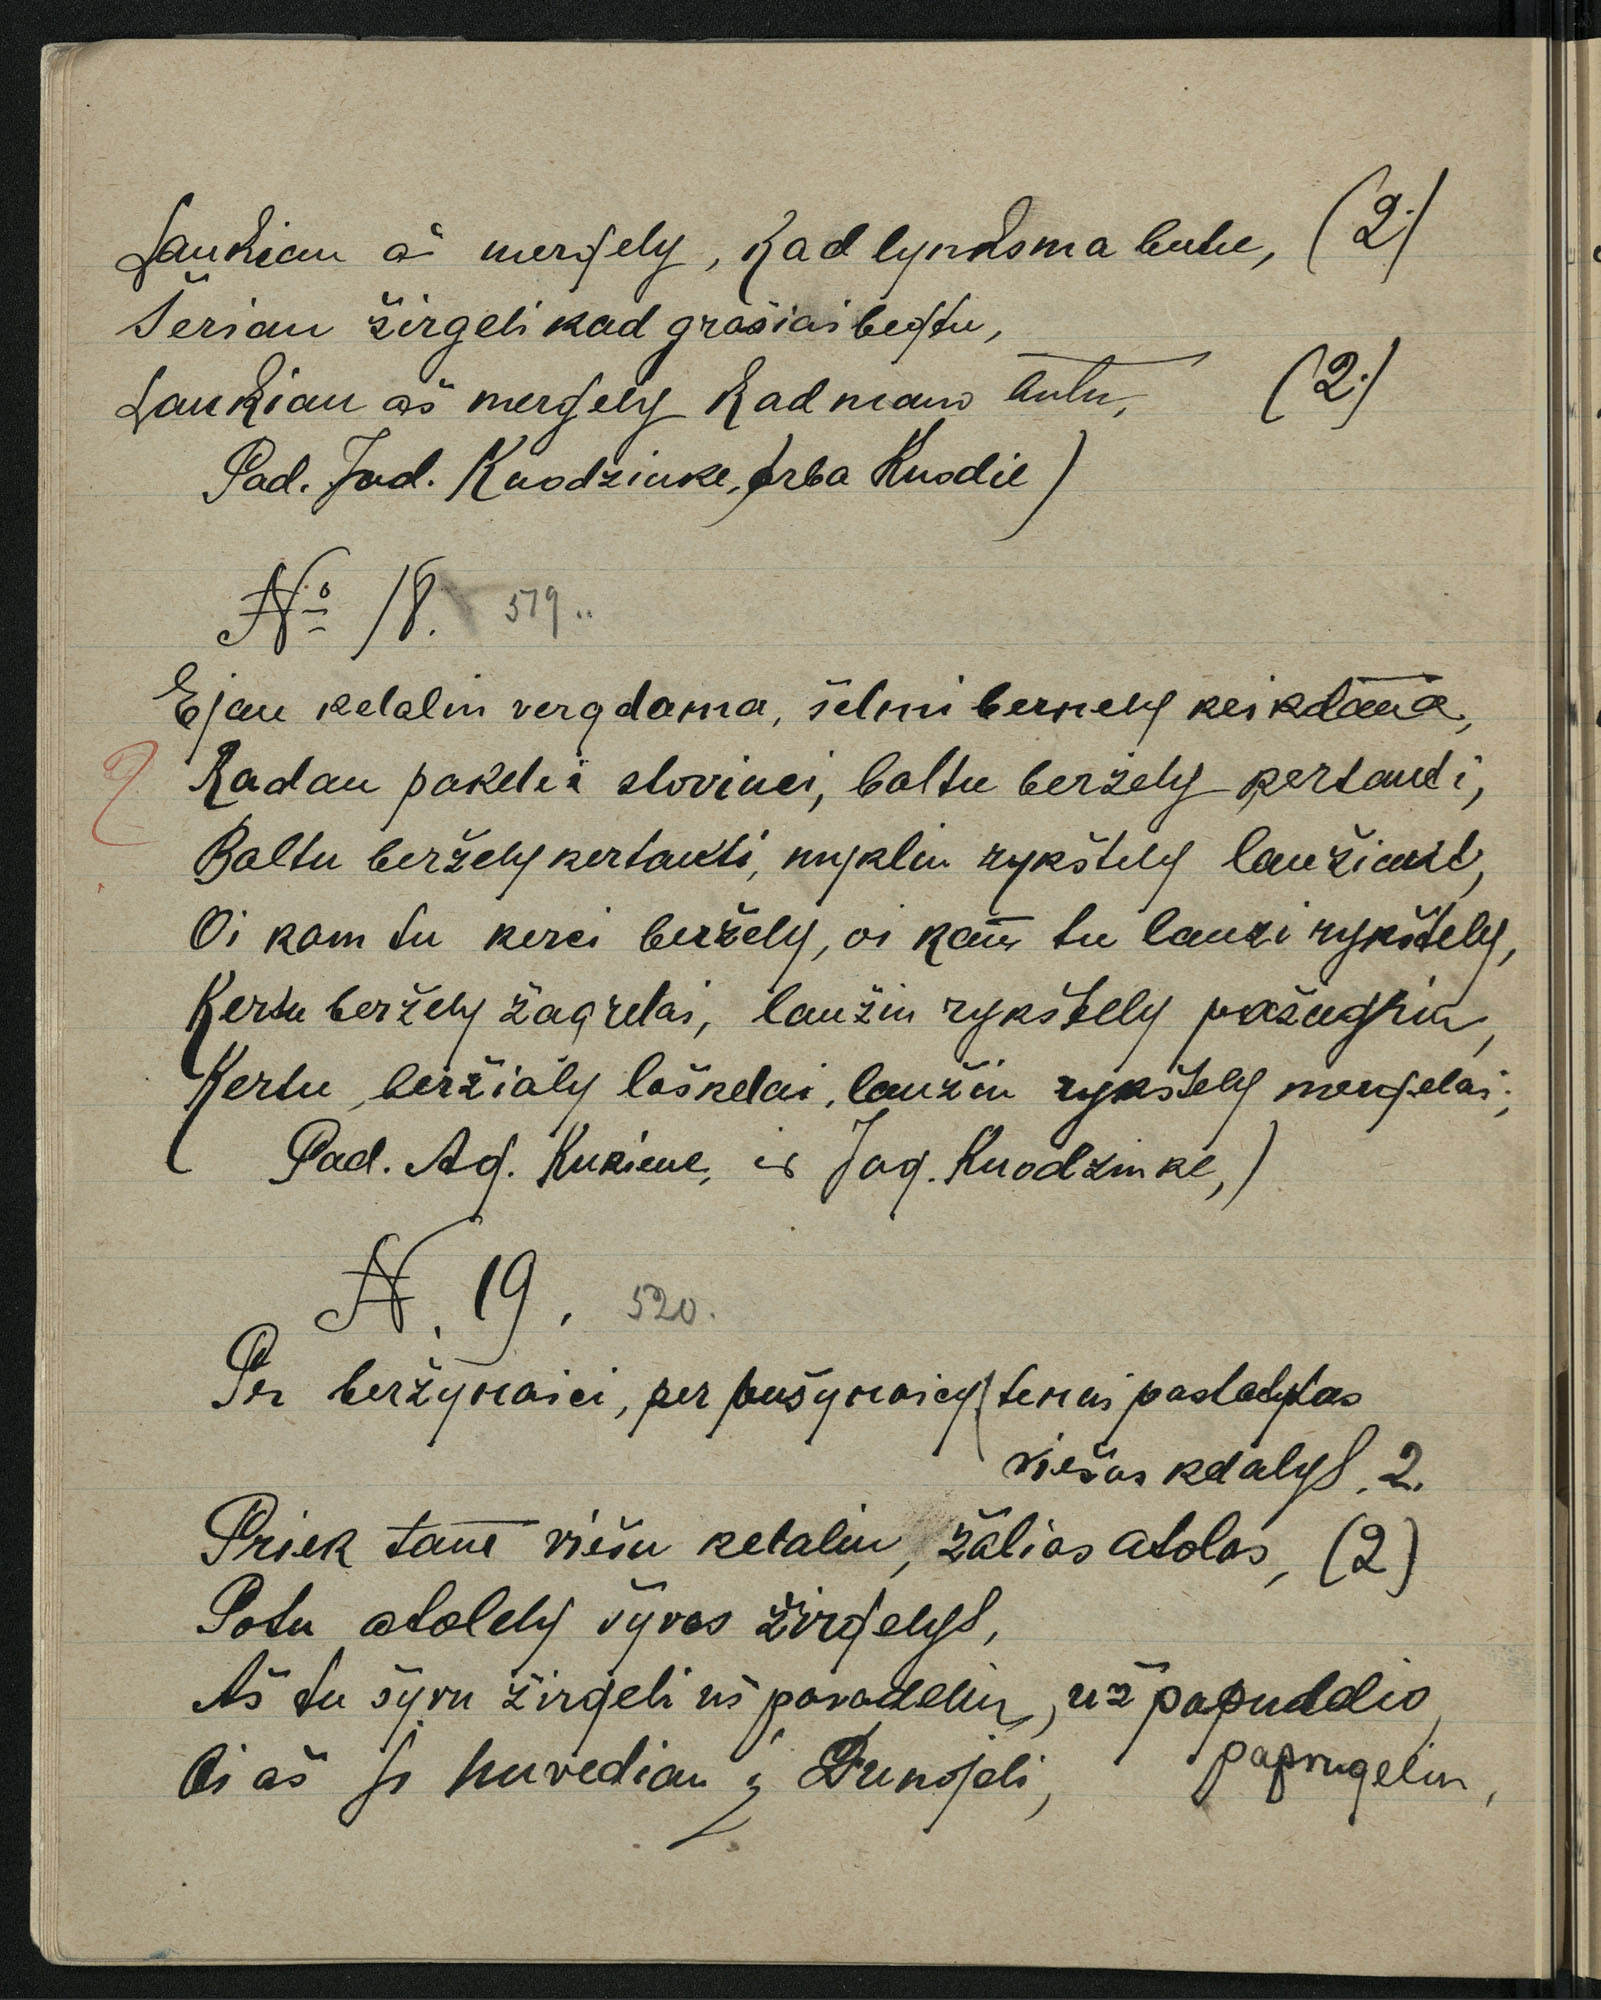 Laukiau aš mergely, kad lynksma butu, (2.)
Šeriau žirgeli kad grašiai begtu,
Laukiau aš mergely kad mano butu, (2.)
Pad. Jad. Knodziuke, (arba Knodie)
№ 18. 519..
Ejau kelaliu vergdama, šelmi bernely keikdama,
Radau pakelei stovinci, baltu berżely kertanti,
Baltu beržely kertanti, nykliu rykštely laužiant,
Oi kam tu kerci beržely, oi kam tu lauzi rykštely,
Kertu beržely žagrelai, laužiu rykštely pažagriu,
Kertu beržialy laškelai, laužiu rykštely mergelai;
Pad. Ag. Kukiene, ir Jag. Knodzinke,)
N. 19. 520.
Per beržynaici, per pušynaicy tenai pastatytas
viešas kelalys, 2.
Priek tam viešu kelaliu, žalias atolas, (2)
Potu atolely šyvas žirgelys,
Aš tu šyvu žirgeli už pavadeliu, už papuddio
papvugeliu,
Oi aš ji nuvediau į Dunojeli,